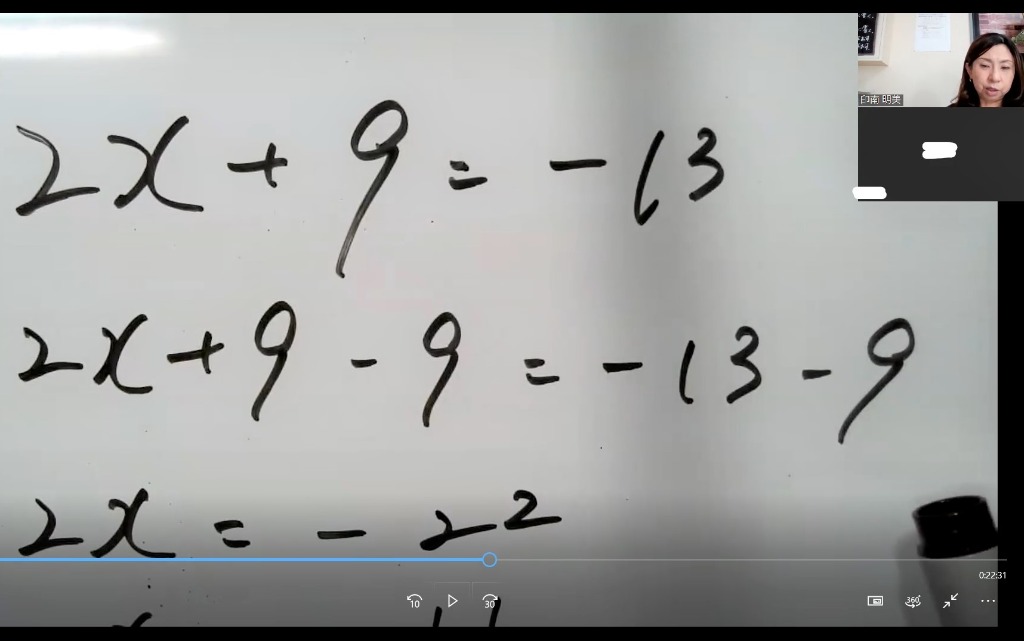 2x + 9 = -13
2x + 9 - 9 = -13 - 9
2x = - 22
印南 明美
0:22:31
10
30
360°